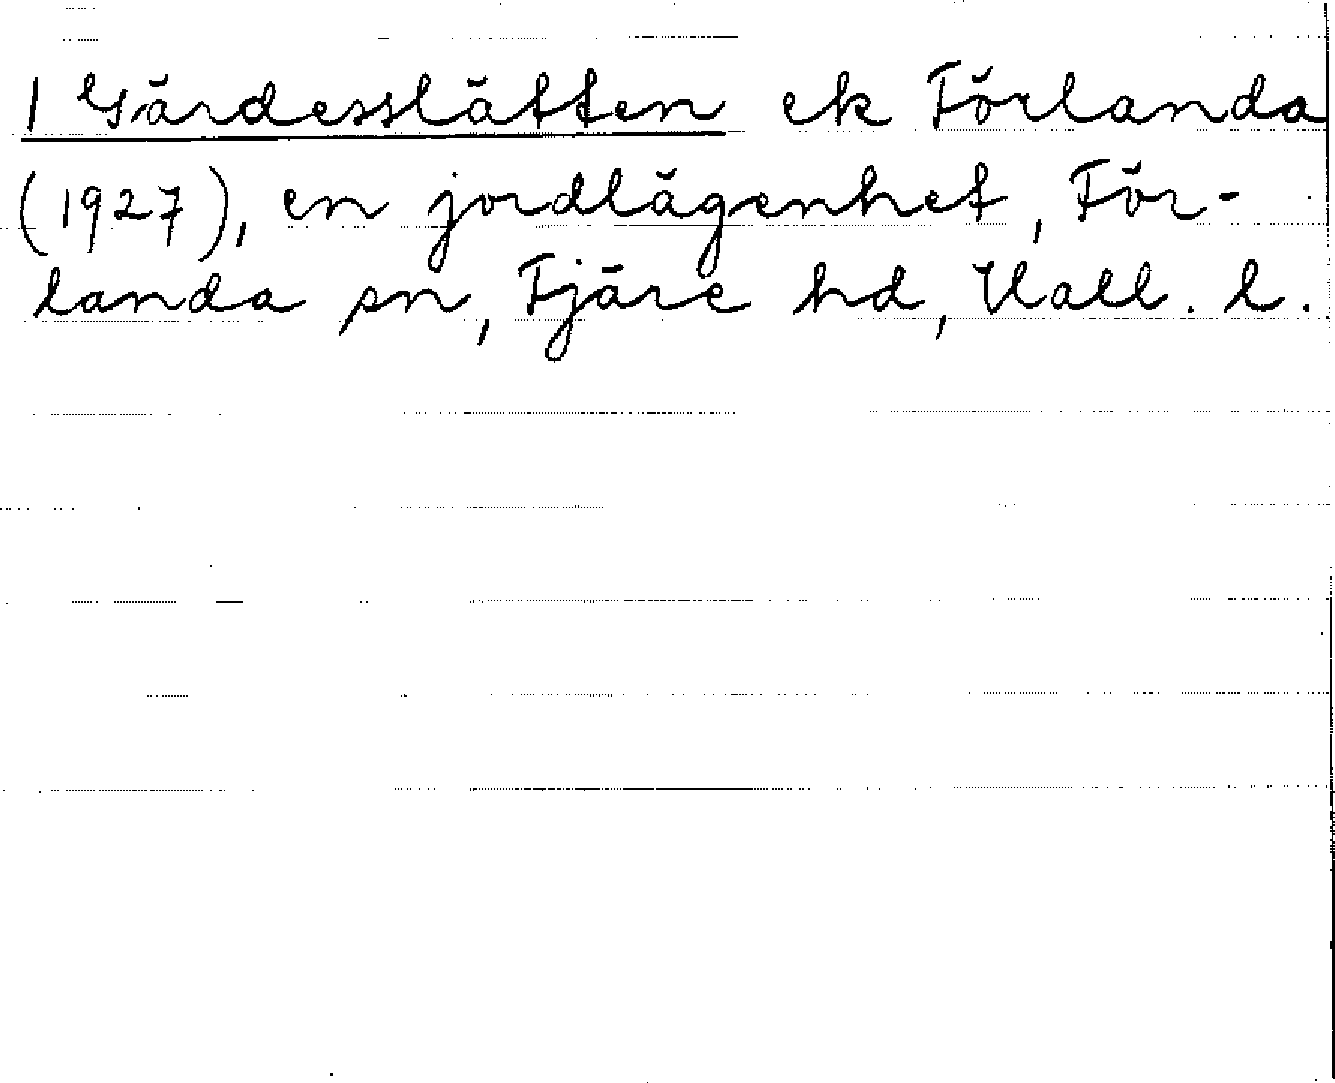 1 Gärdesslätten ek Förlanda
(1927), en jordlägenhet, För-
landa sn, Fjäre hd, Hall. l.